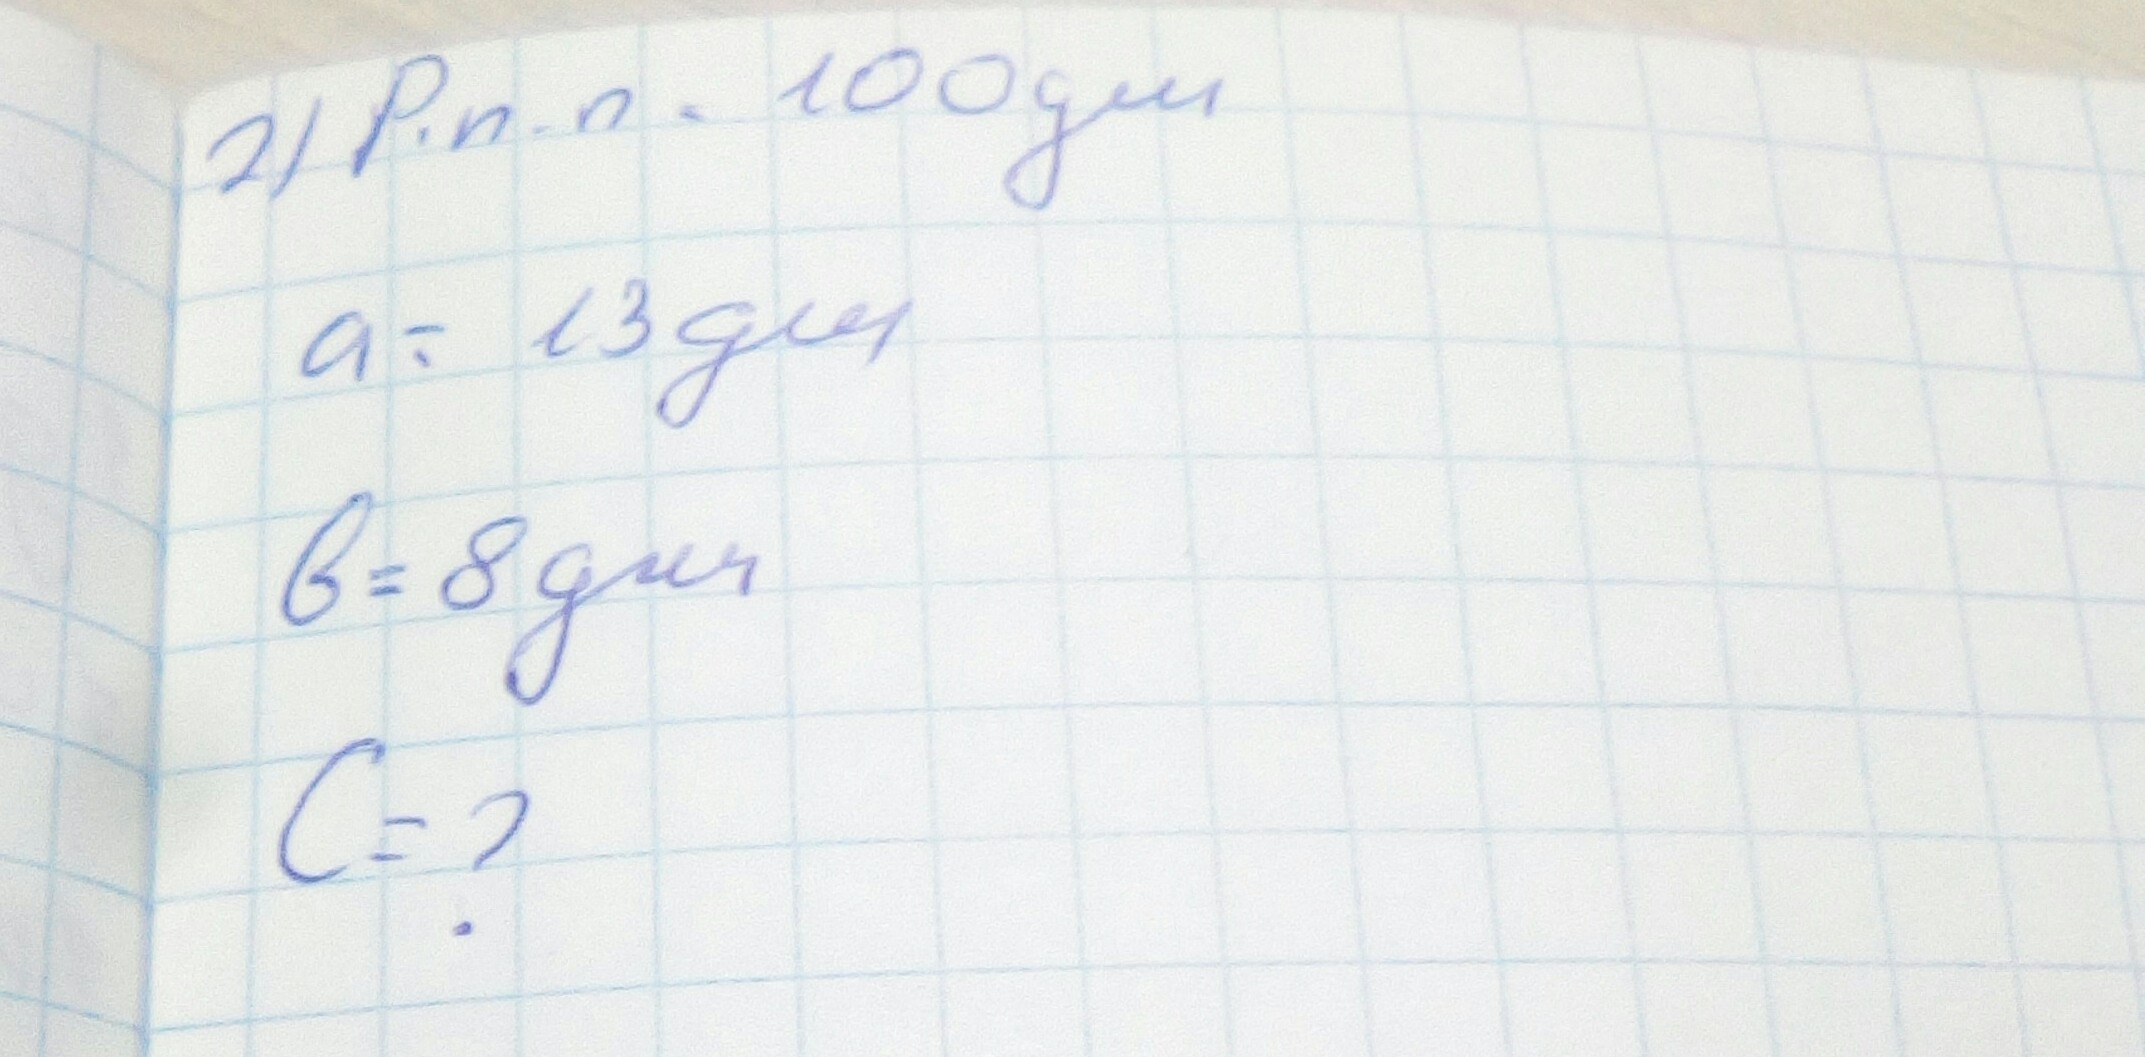 2) P.п.п. = 100дм
a = 13дм
в = 8дм
C = ?